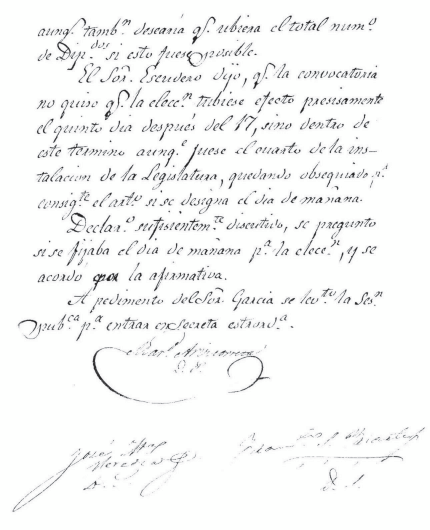 aunq.ᵉ tambⁿ desearia q.ᵉ ubiera el total num.º
de Dip.ᵈᵒˢ si esto fuese posible.
El Sor. Escudero dijo, q.ᵉ la convocatoria
no quiso q.ᵉ la elec.ⁿ tubiese efecto presisamente
el quinto dia después del 17, sino dentro de
este termino aunq.ᵉ fuese el cuarto de la ins-
talacion de la Legislatura, quedando obsequiado p.ʳ
consig.ᵗᵉ el art.º si se designa el dia de mañana.
Declar.º sufisientem.ᵗᵉ discutivo, se pregunto
si se fijaba el dia de mañana p.ᵃ la elec.ⁿ, y se
acordó por la afirmativa.
A pedimento del Sor. Garcia se lev.ᵗᵒ la Ses.ⁿ
pub.ᶜᵃ p.ᵃ entrar en secreta estraord.ᵃ
D. P.
José
Heredia
D. S.
D. S.